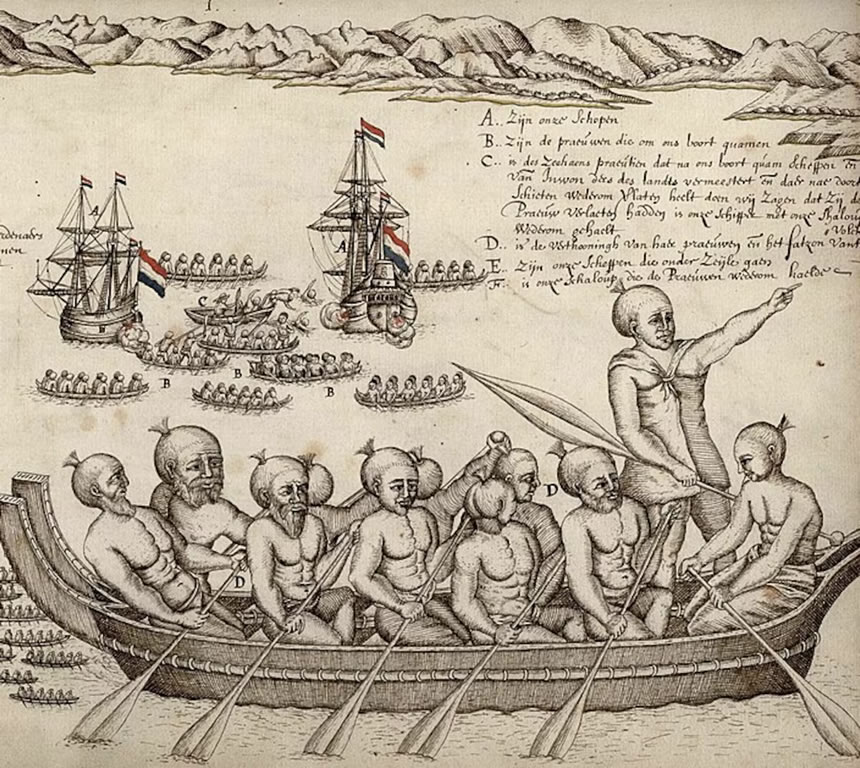 A
A
C
B
B
B
D
D
rdenaers
nen
A.. Zijn onze Schepen
B.. Zijn de praeuwen die om ons boort quamen
C.. is des Zeehaens praeutien dat na ons boort quam Scheppen en
van Inwon ders des landts vermeestert en daer nae door
Schieten Wederom Verlaten heelt doen wij Zagen dat Zij de
Praeuw Verlaeten hadden is onze Schipper met onze Chalou
Wederom gehaelt
D.. is de Verthooningh van haer praeuwen en het fatzon van
E.. Zijn onze Scheepen die onder Zeijle gaen
F.. is onze Schaloup die de Praeuwen wederom haelde